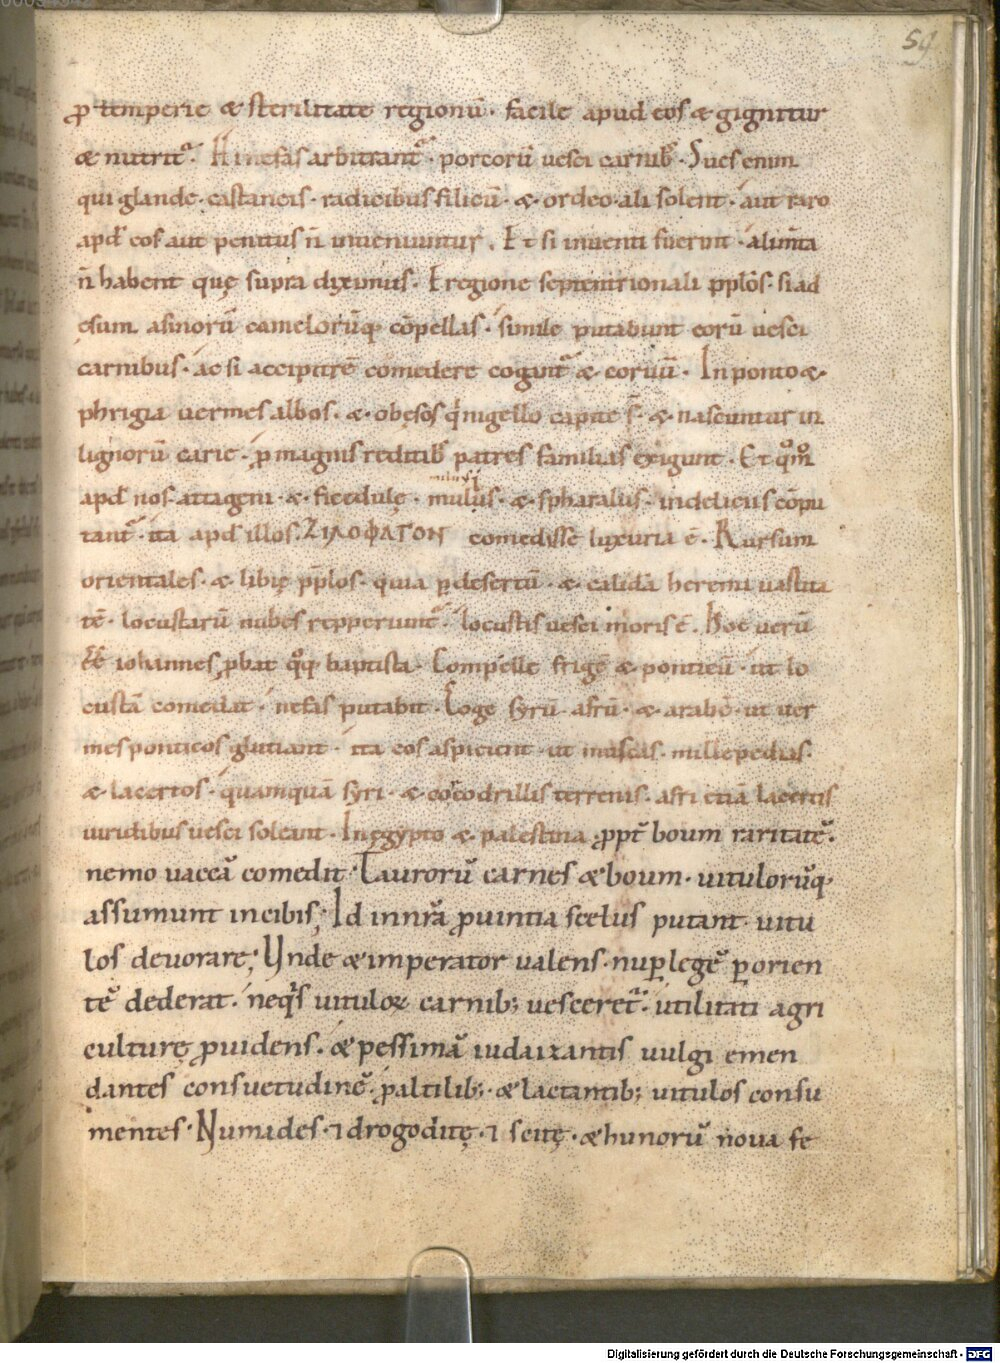 59
ꝓ temperie & sterilitate regionū· facile apud eos & gignitur
& nutrit᷑· Hi nefas arbitrant᷑· porcorū uesci carnib᷒· Sues enim
qui glande· castaneis· radicibus filicū· &· ordeo· ali solent· aut raro
apđ eos aut penitus n̄ inueniuntur. Et si inuenti fuerint· alim̄ta
n̄ habent quę supra diximus· E regione septentrionali pp̄los· si ad
esum asinorū camelorūq; cōpellas· simile putabunt eorū uesci
carnibus· ac si accipitrē comedere cogant᷑ & coruū· In ponto &·
phrigia uermes albos· &· obęsos q́ nigello capite s̄· & nascuntur in
lignorū carie· ꝓ magnis reditib᷒ patres familias exigunt· Et qm̊
apđ nos attagen· &· ficedulę· mulus· &· spharalus· in deliciis cōpu
tant᷑· ita apđ illos ΖΙΛΟΦΑΓΟΝ comedisse luxuria ē· Rursum
orientales· & libię pp̄los· quia p̱ desertū· & calidā heremi uastita
tē· locustarū nubes repperiunt᷑· locustis uesci moris ē. Hoc uerū
eē̄ iohannes ꝓbat qq̊; baptista· Compelle frigē & ponticū· ut lo
custā comedat· nefas putabit· Coge syrū· afrū· &· arabē· ut uer
mes ponticos glutiant· ita eos aspiciunt· ut muscas· millepedias·
& lacertos· quamquā syri· & cocodrillis terrenis· afri etiā lacertis
uiridibus uesci soleant· In ęgypto & palestina ꝓpt̄ boum raritatē·
nemo uaccā comedit· Taurorū carnes & boum· uitulorūq;
assumunt in cibis; Id in nr̄a ꝓuintia scelus putant· uitu
los deuorare; Unde & imperator ualens· nup̱ legē p̱ orien
tē dederat· neq́s uituloꝝ carnib; uesceret᷑· utilitati agri
culturę ꝓuidens· & pessimā iudaizantis uulgi emen
dantes consuetudinē· p̄ altilib;· & lactantib; uitulos consu
mentes· Numades· ⁊ drogoditę· ⁊ scitę· & hunorū noua fe
Digitalisierung gefördert durch die Deutsche Forschungsgemeinschaft - DFG